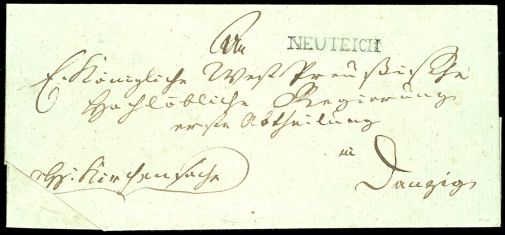 An
NEUTEICH
E. Königliche West Preußische
Hochlöbliche Regierung
erste Abtheilung
in
Danzig
Kirchensache